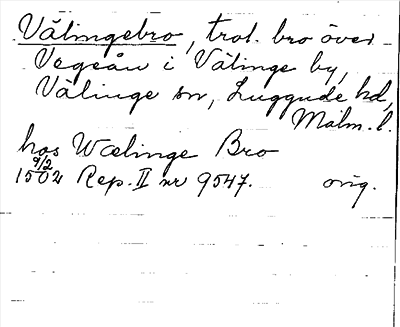 Välingebro, trol. bro över
Vegeån i Välinge by,
Välinge sn, Luggude hd,
Malm. l.
hos Wælinge Bro
9/2
1502 Rep. II nr 9547. orig.